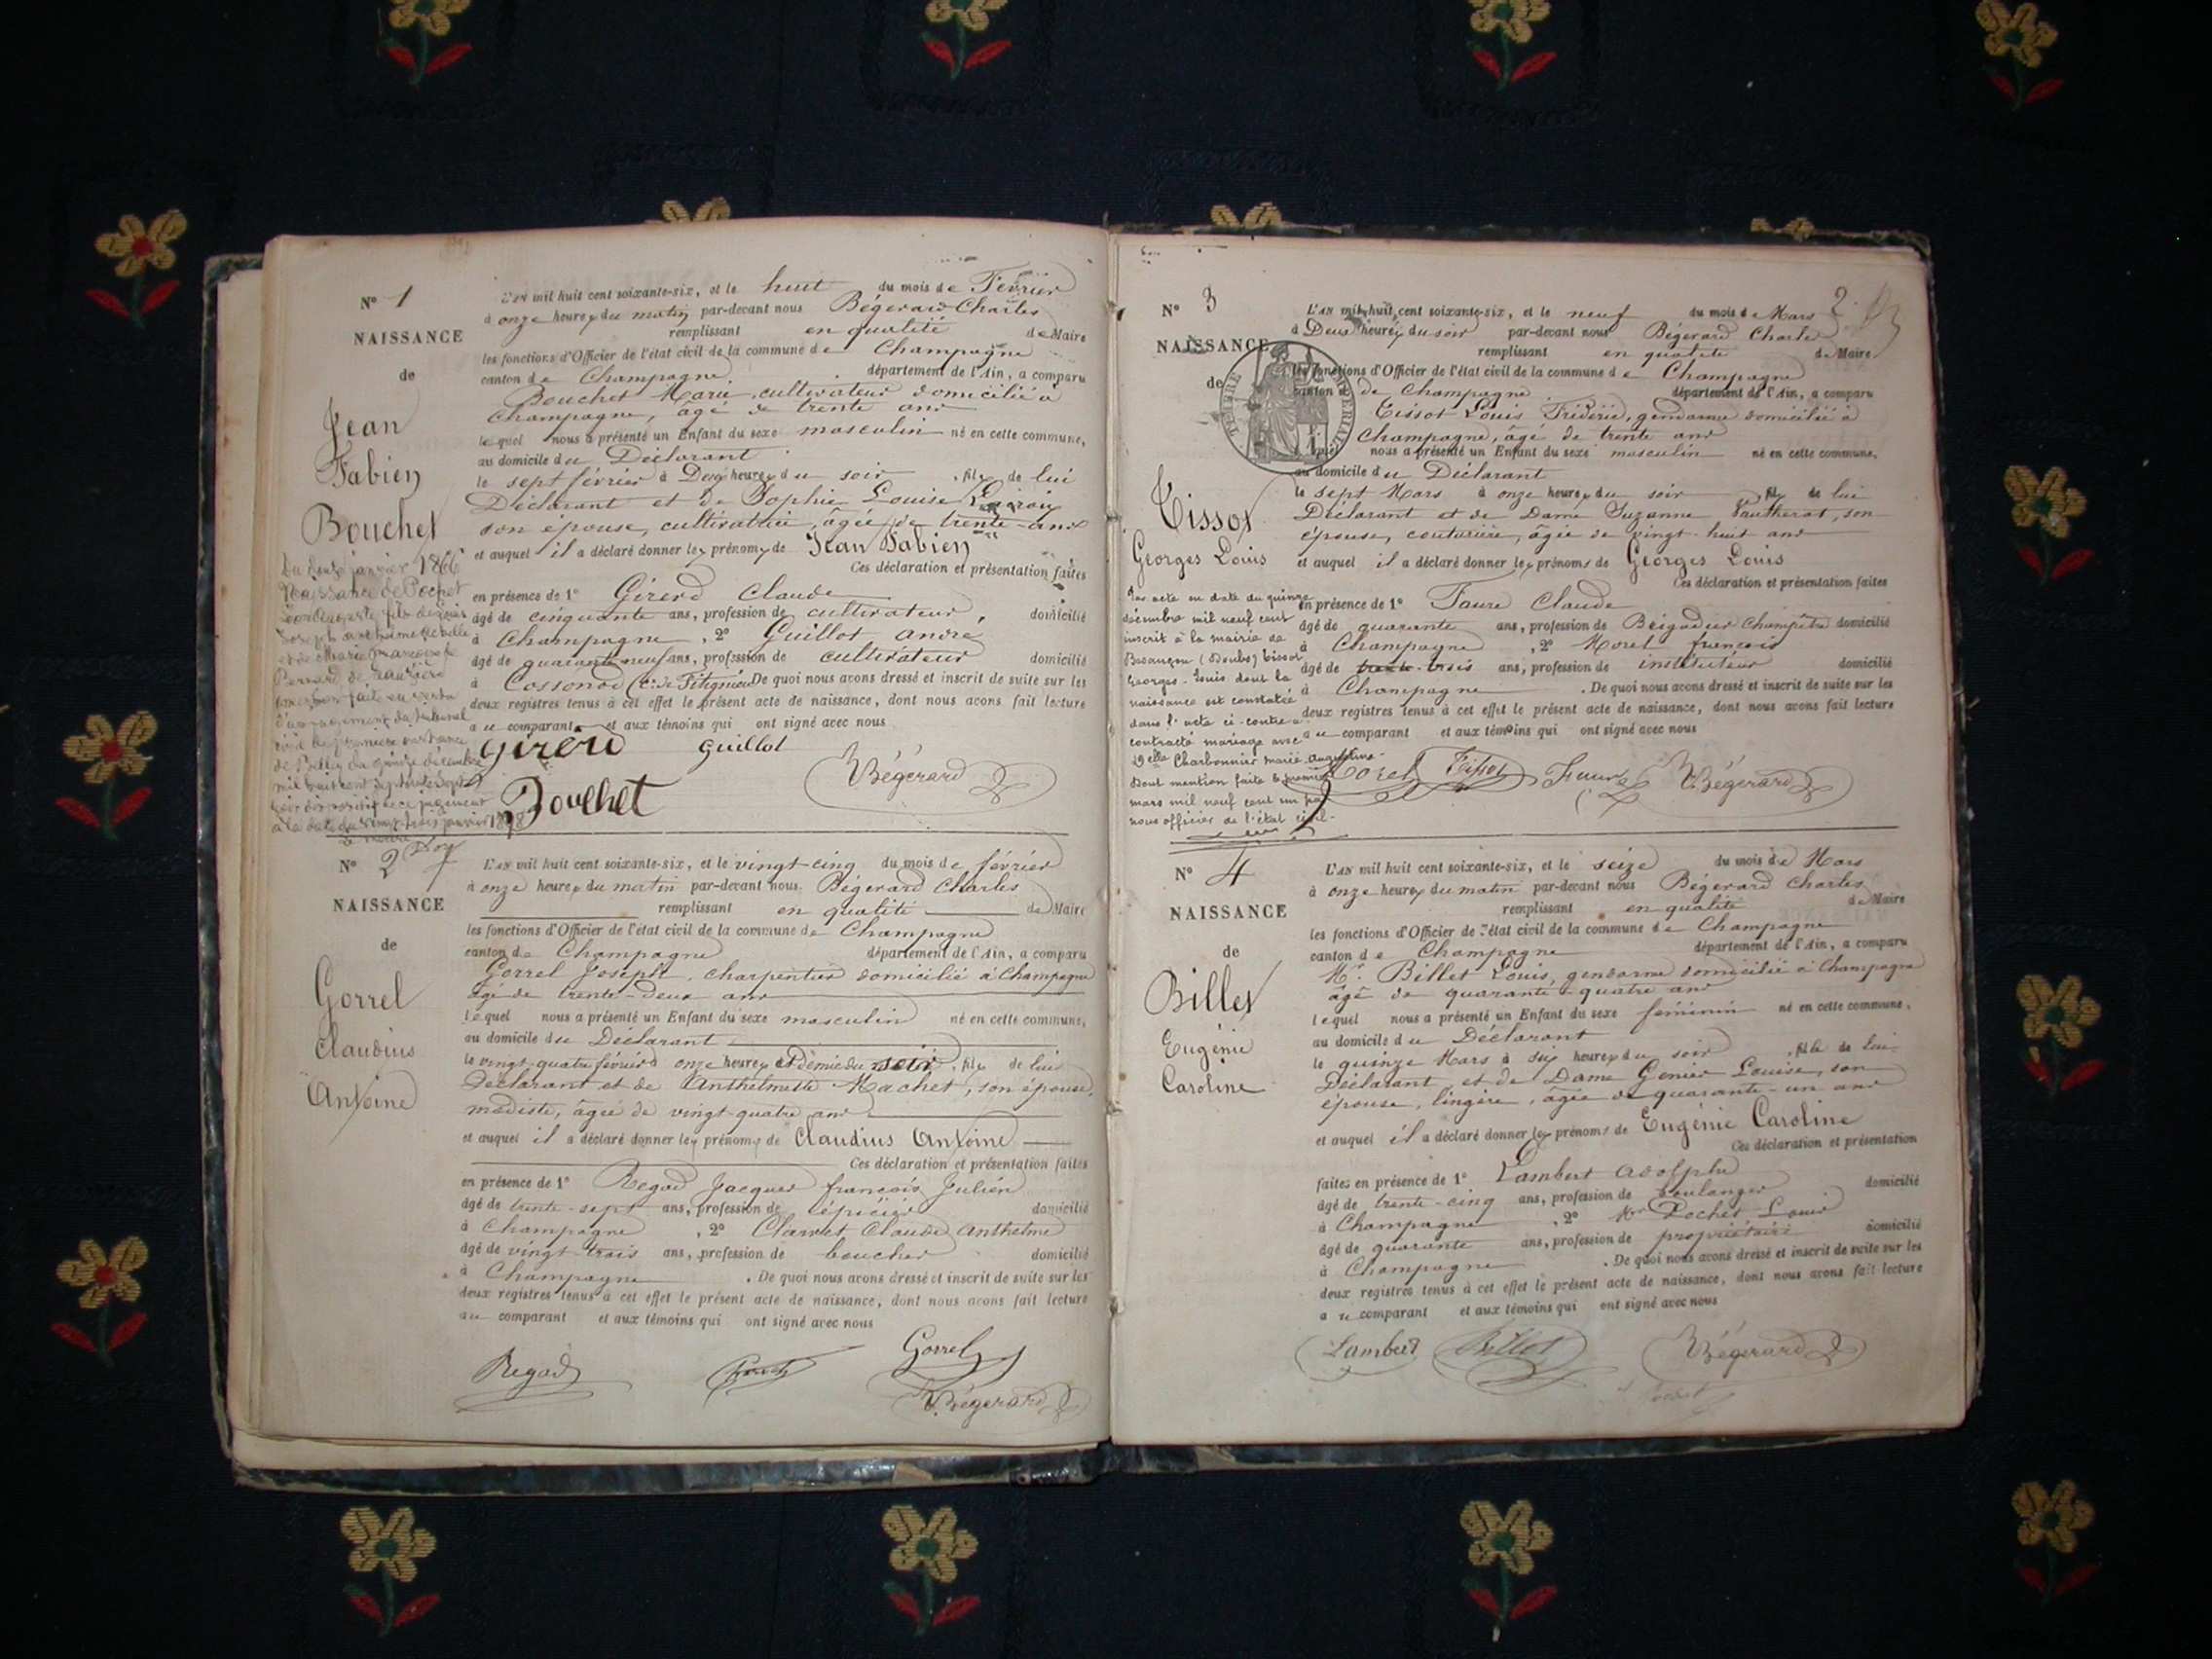 N° 1
NAISSANCE
de
Jean
Fabien
Bouchet
L'AN mil huit cent soixante-six, et le huit du mois de Février
à onze heures du matin par-devant nous Bégerard Charles
remplissant en qualité de Maire
les fonctions d'Officier de l'état civil de la commune de Champagne
canton de Champagne département de l'Ain, a comparu
Bouchet Marie, cultivateur domicilié à
Champagne, âgé de trente ans
lequel nous a présenté un Enfant du sexe masculin né en cette commune,
au domicile du Déclarant
le sept février à Deux heures du soir, fils de lui
Déclarant et de Sophie Louise
son épouse, cultivatrice, âgée de trente ans
et auquel il a déclaré donner les prénoms de Jean Fabien
Ces déclaration et présentation faites
en présence de 1° Girerd Claude
âgé de cinquante ans, profession de cultivateur, domicilié
à Champagne, 2° Guillot André
âgé de quarante neuf ans, profession de cultivateur domicilié
à Cossonod De quoi nous avons dressé et inscrit de suite sur les
deux registres tenus à cet effet le présent acte de naissance, dont nous avons fait lecture
au comparant et aux témoins qui ont signé avec nous
Girerd Guillot
Bouchet Bégerard
janvier 1866
Naissance de Pochet
N° 2
NAISSANCE
de
Gorrel
Claudius
Antoine
L'AN mil huit cent soixante-six, et le vingt-cinq du mois de février
à onze heures du matin par-devant nous Bégerard Charles
remplissant en qualité de Maire
les fonctions d'Officier de l'état civil de la commune de Champagne
canton de Champagne département de l'Ain, a comparu
Gorrel Joseph, charpentier domicilié à Champagne
âgé de trente-deux ans
lequel nous a présenté un Enfant du sexe masculin né en cette commune,
au domicile du Déclarant
le vingt-quatre février à onze heures et Demie du soir, fils de lui
Déclarant et de Anthelmette Machet, son épouse,
modiste, âgée de vingt-quatre ans
et auquel il a déclaré donner les prénoms de Claudius Antoine
Ces déclaration et présentation faites
en présence de 1° Regad Jacques françois Julien
âgé de trente-sept ans, profession de épicier domicilié
à Champagne, 2° Claude Anthelme
âgé de vingt-trois ans, profession de boucher domicilié
à Champagne. De quoi nous avons dressé et inscrit de suite sur les
deux registres tenus à cet effet le présent acte de naissance, dont nous avons fait lecture
au comparant et aux témoins qui ont signé avec nous
Regad Gorrel
Bégerard
2
N° 3
NAISSANCE
de
TIMBRE IMPERIAL
Tissot
Georges Louis
L'AN mil huit cent soixante-six, et le neuf du mois de Mars
à Deux heures du soir par-devant nous Bégerard Charles
remplissant en qualité de Maire
les fonctions d'Officier de l'état civil de la commune de Champagne
canton de Champagne département de l'Ain, a comparu
Tissot Louis Fréderic, gendarme domicilié à
Champagne, âgé de trente ans
lequel nous a présenté un Enfant du sexe masculin né en cette commune,
au domicile du Déclarant
le sept Mars à onze heures du soir, fils de lui
Déclarant et de Dame Suzanne Vautherot, son
épouse, couturière, âgée de vingt-huit ans
et auquel il a déclaré donner les prénoms de Georges Louis
Ces déclaration et présentation faites
en présence de 1° Faure Claude
âgé de quarante ans, profession de Brigadier Champêtre domicilié
à Champagne, 2° Morel françois
âgé de trente-trois ans, profession de instituteur domicilié
à Champagne. De quoi nous avons dressé et inscrit de suite sur les
deux registres tenus à cet effet le présent acte de naissance, dont nous avons fait lecture
au comparant et aux témoins qui ont signé avec nous
Morel Tissot Faure Bégerard
Par acte en date du quinze
décembre mil neuf cent
inscrit à la mairie de
Besançon (Doubs) Tissot
Georges-Louis dont la
naissance est constatée
dans l'acte ci-contre a
contracté mariage avec
Delle Charbonnier Marie-Augustine
Dont mention faite le premier
mars mil neuf cent un par
nous officier de l'état civil
N° 4
NAISSANCE
de
Billet
Eugénie
Caroline
L'AN mil huit cent soixante-six, et le seize du mois de Mars
à onze heures du matin par-devant nous Bégerard Charles
remplissant en qualité de Maire
les fonctions d'Officier de l'état civil de la commune de Champagne
canton de Champagne département de l'Ain, a comparu
Mr. Billet Louis, gendarme domicilié à Champagne
âgé de quarante-quatre ans
lequel nous a présenté un Enfant du sexe féminin né en cette commune,
au domicile du Déclarant
le quinze Mars à six heures du soir, fille de lui
Déclarant, et de Dame Genier Louise, son
épouse, lingère, âgée de quarante-un ans
et auquel il a déclaré donner les prénoms de Eugénie Caroline
Ces déclaration et présentation
faites en présence de 1° Lambert Adolphe
âgé de trente-cinq ans, profession de boulanger domicilié
à Champagne, 2° Mr Pochet Louis
âgé de quarante ans, profession de propriétaire domicilié
à Champagne. De quoi nous avons dressé et inscrit de suite sur les
deux registres tenus à cet effet le présent acte de naissance, dont nous avons fait lecture
au comparant et aux témoins qui ont signé avec nous
Lambert Billet Bégerard